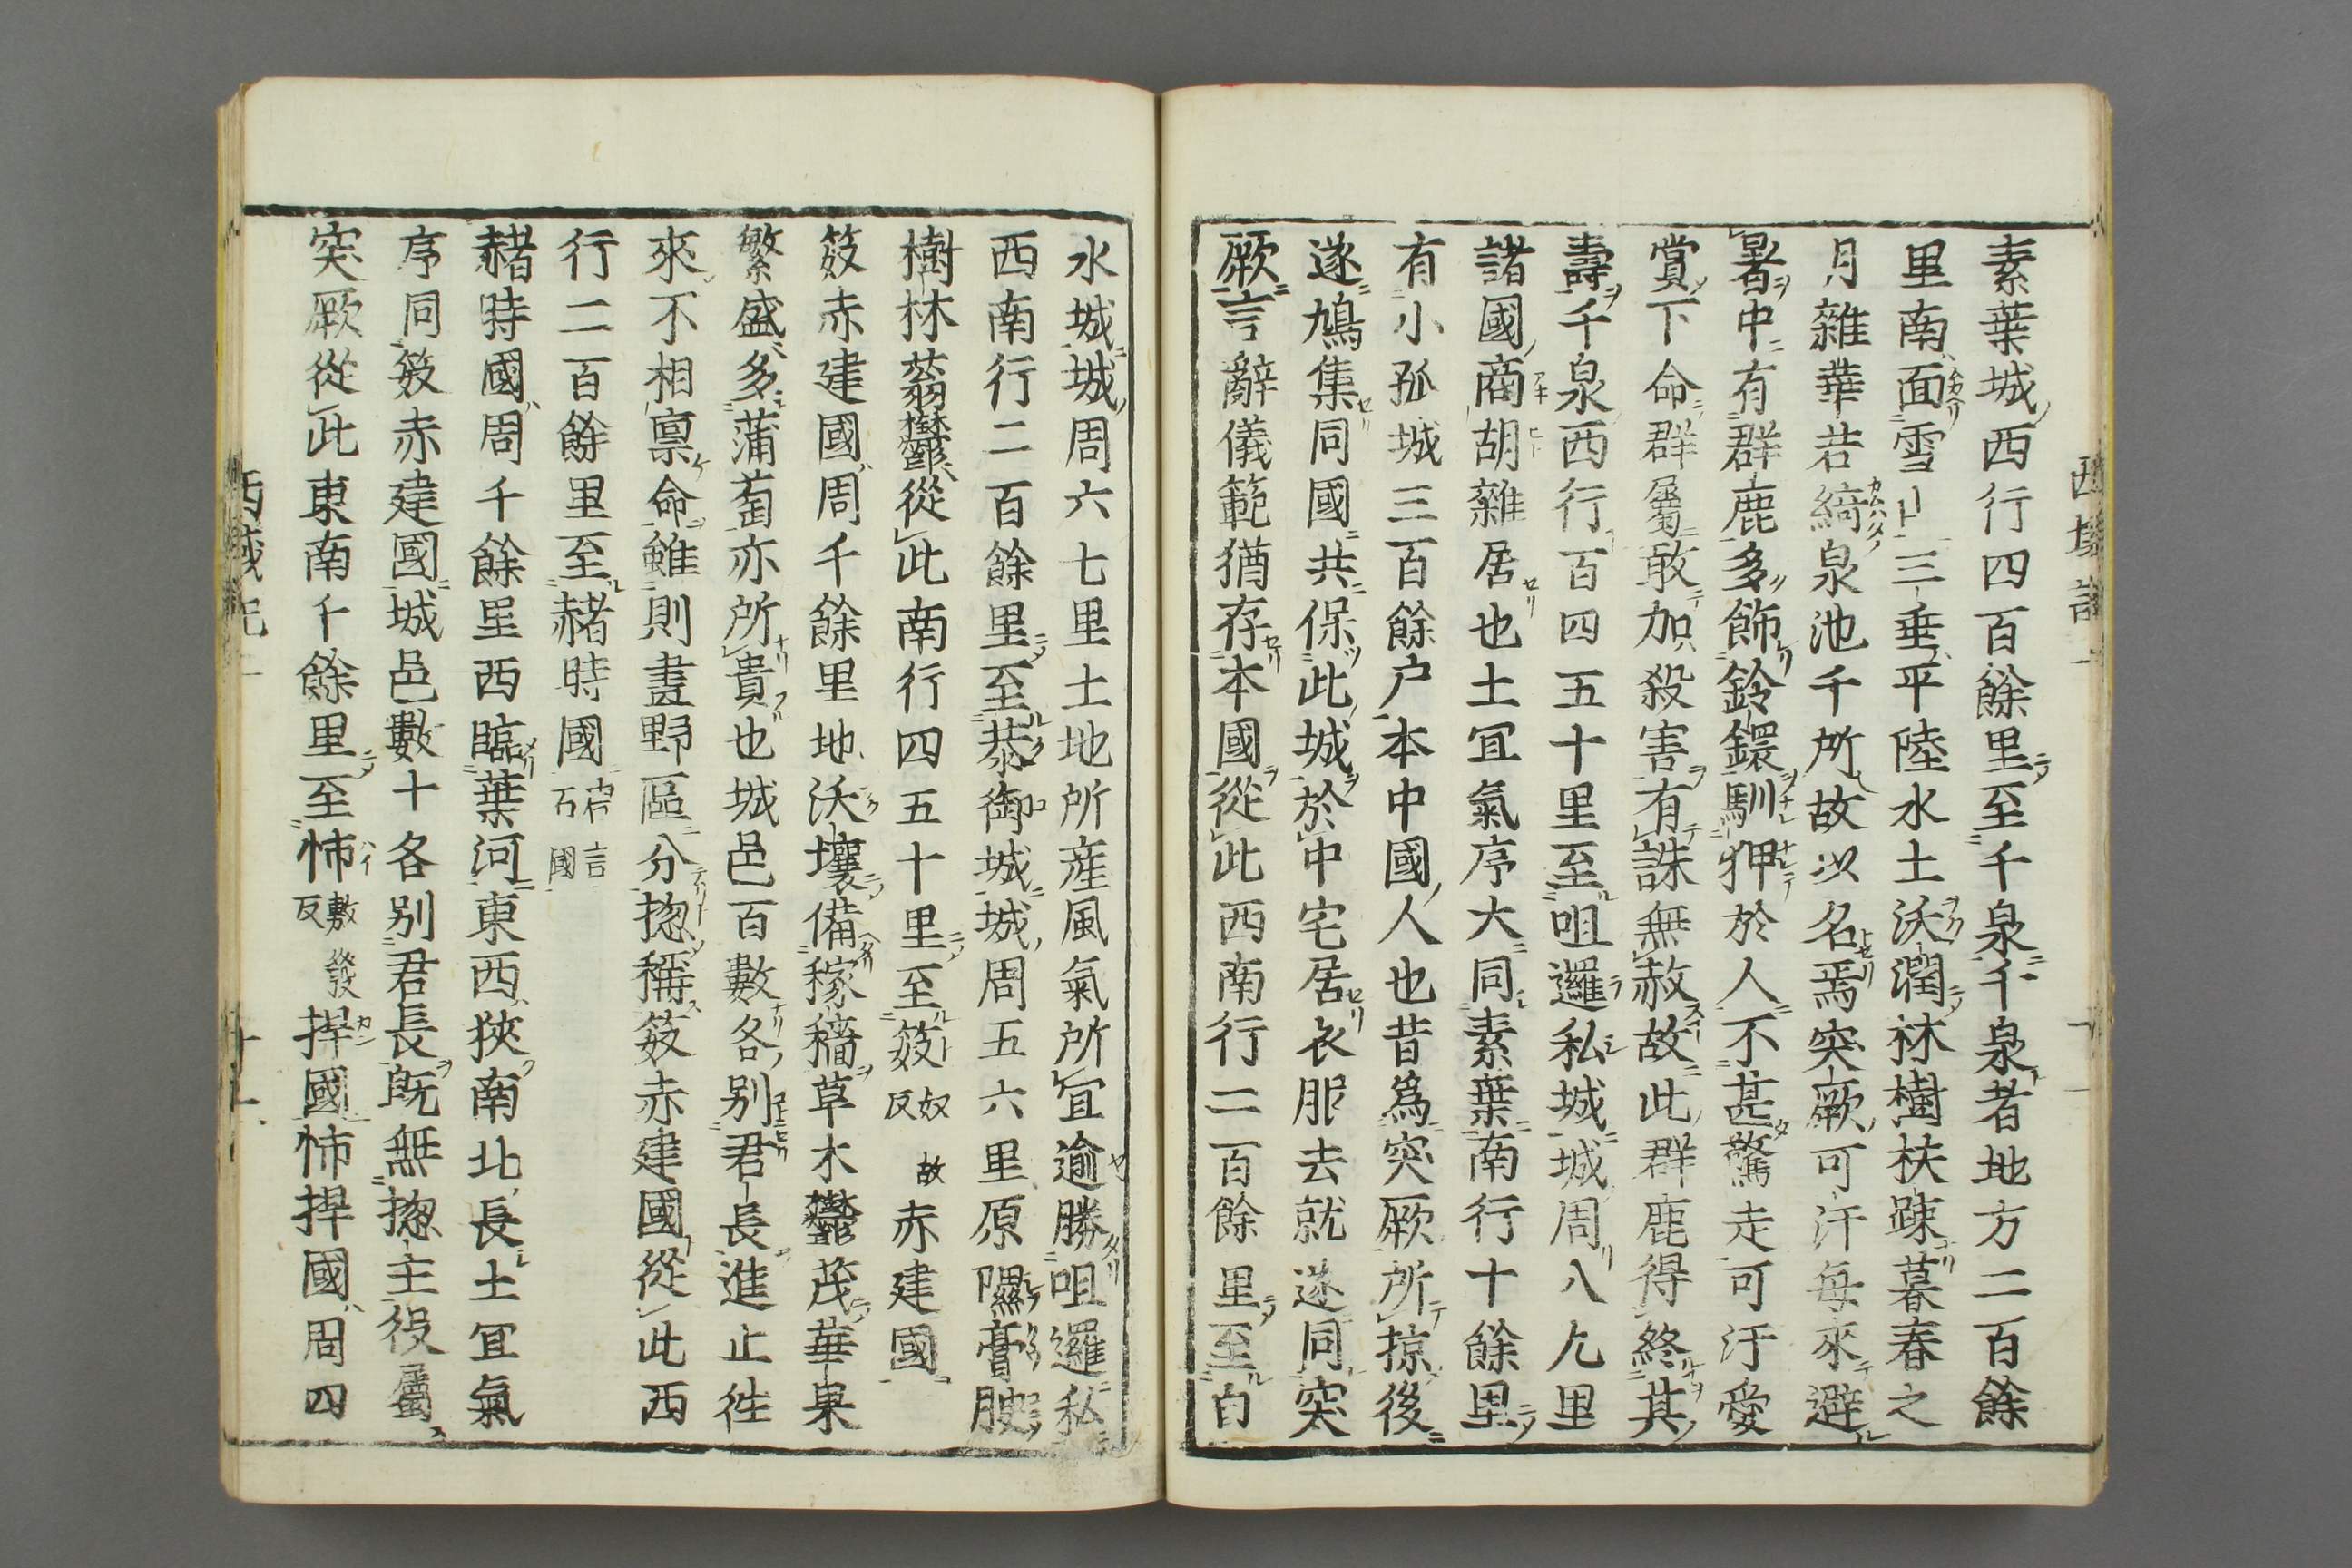 素葉城西行四百餘里至千泉千泉者地方二百餘
里南面雪山三垂平陸水土沃潤林樹扶踈暮春之
月雜華若綺泉池千所故以名焉突厥可汗每來避
暑中有群鹿多飾鈴鐶馴狎於人不甚驚走可汗愛
賞下命群屬敢加殺害有誅無赦故此群鹿得終其
壽千泉西行百四五十里至呾邏私城城周八九里
諸國商胡雜居也土宜氣序大同素葉南行十餘里
有小孤城三百餘户本中國人也昔爲突厥所掠後
遂鳩集同國共保此城於中宅居衣服去就遂同突
厥言辭儀範猶存本國從此西南行二百餘里至白
西域記一
水城城周六七里土地所産風氣所宜逾勝呾邏私
西南行二百餘里至恭御城城周五六里原隰膏腴
樹林蓊欝從此南行四五十里至笯奴故反赤建國
笯赤建國周千餘里地沃壤備稼穡草木欝茂華果
繁盛多蒲萄亦所貴也城邑百數各別君長進止往
來不相禀命雖則畫野區分揔稱笯赤建國從此西
行二百餘里至赭時國唐言石國
赭時國周千餘里西臨葉河東西狹南北長土宜氣
序同笯赤建國城邑數十各別君長既無揔主役屬
突厥從此東南千餘里至㤄敷發反捍國㤄捍國周四
西域記一